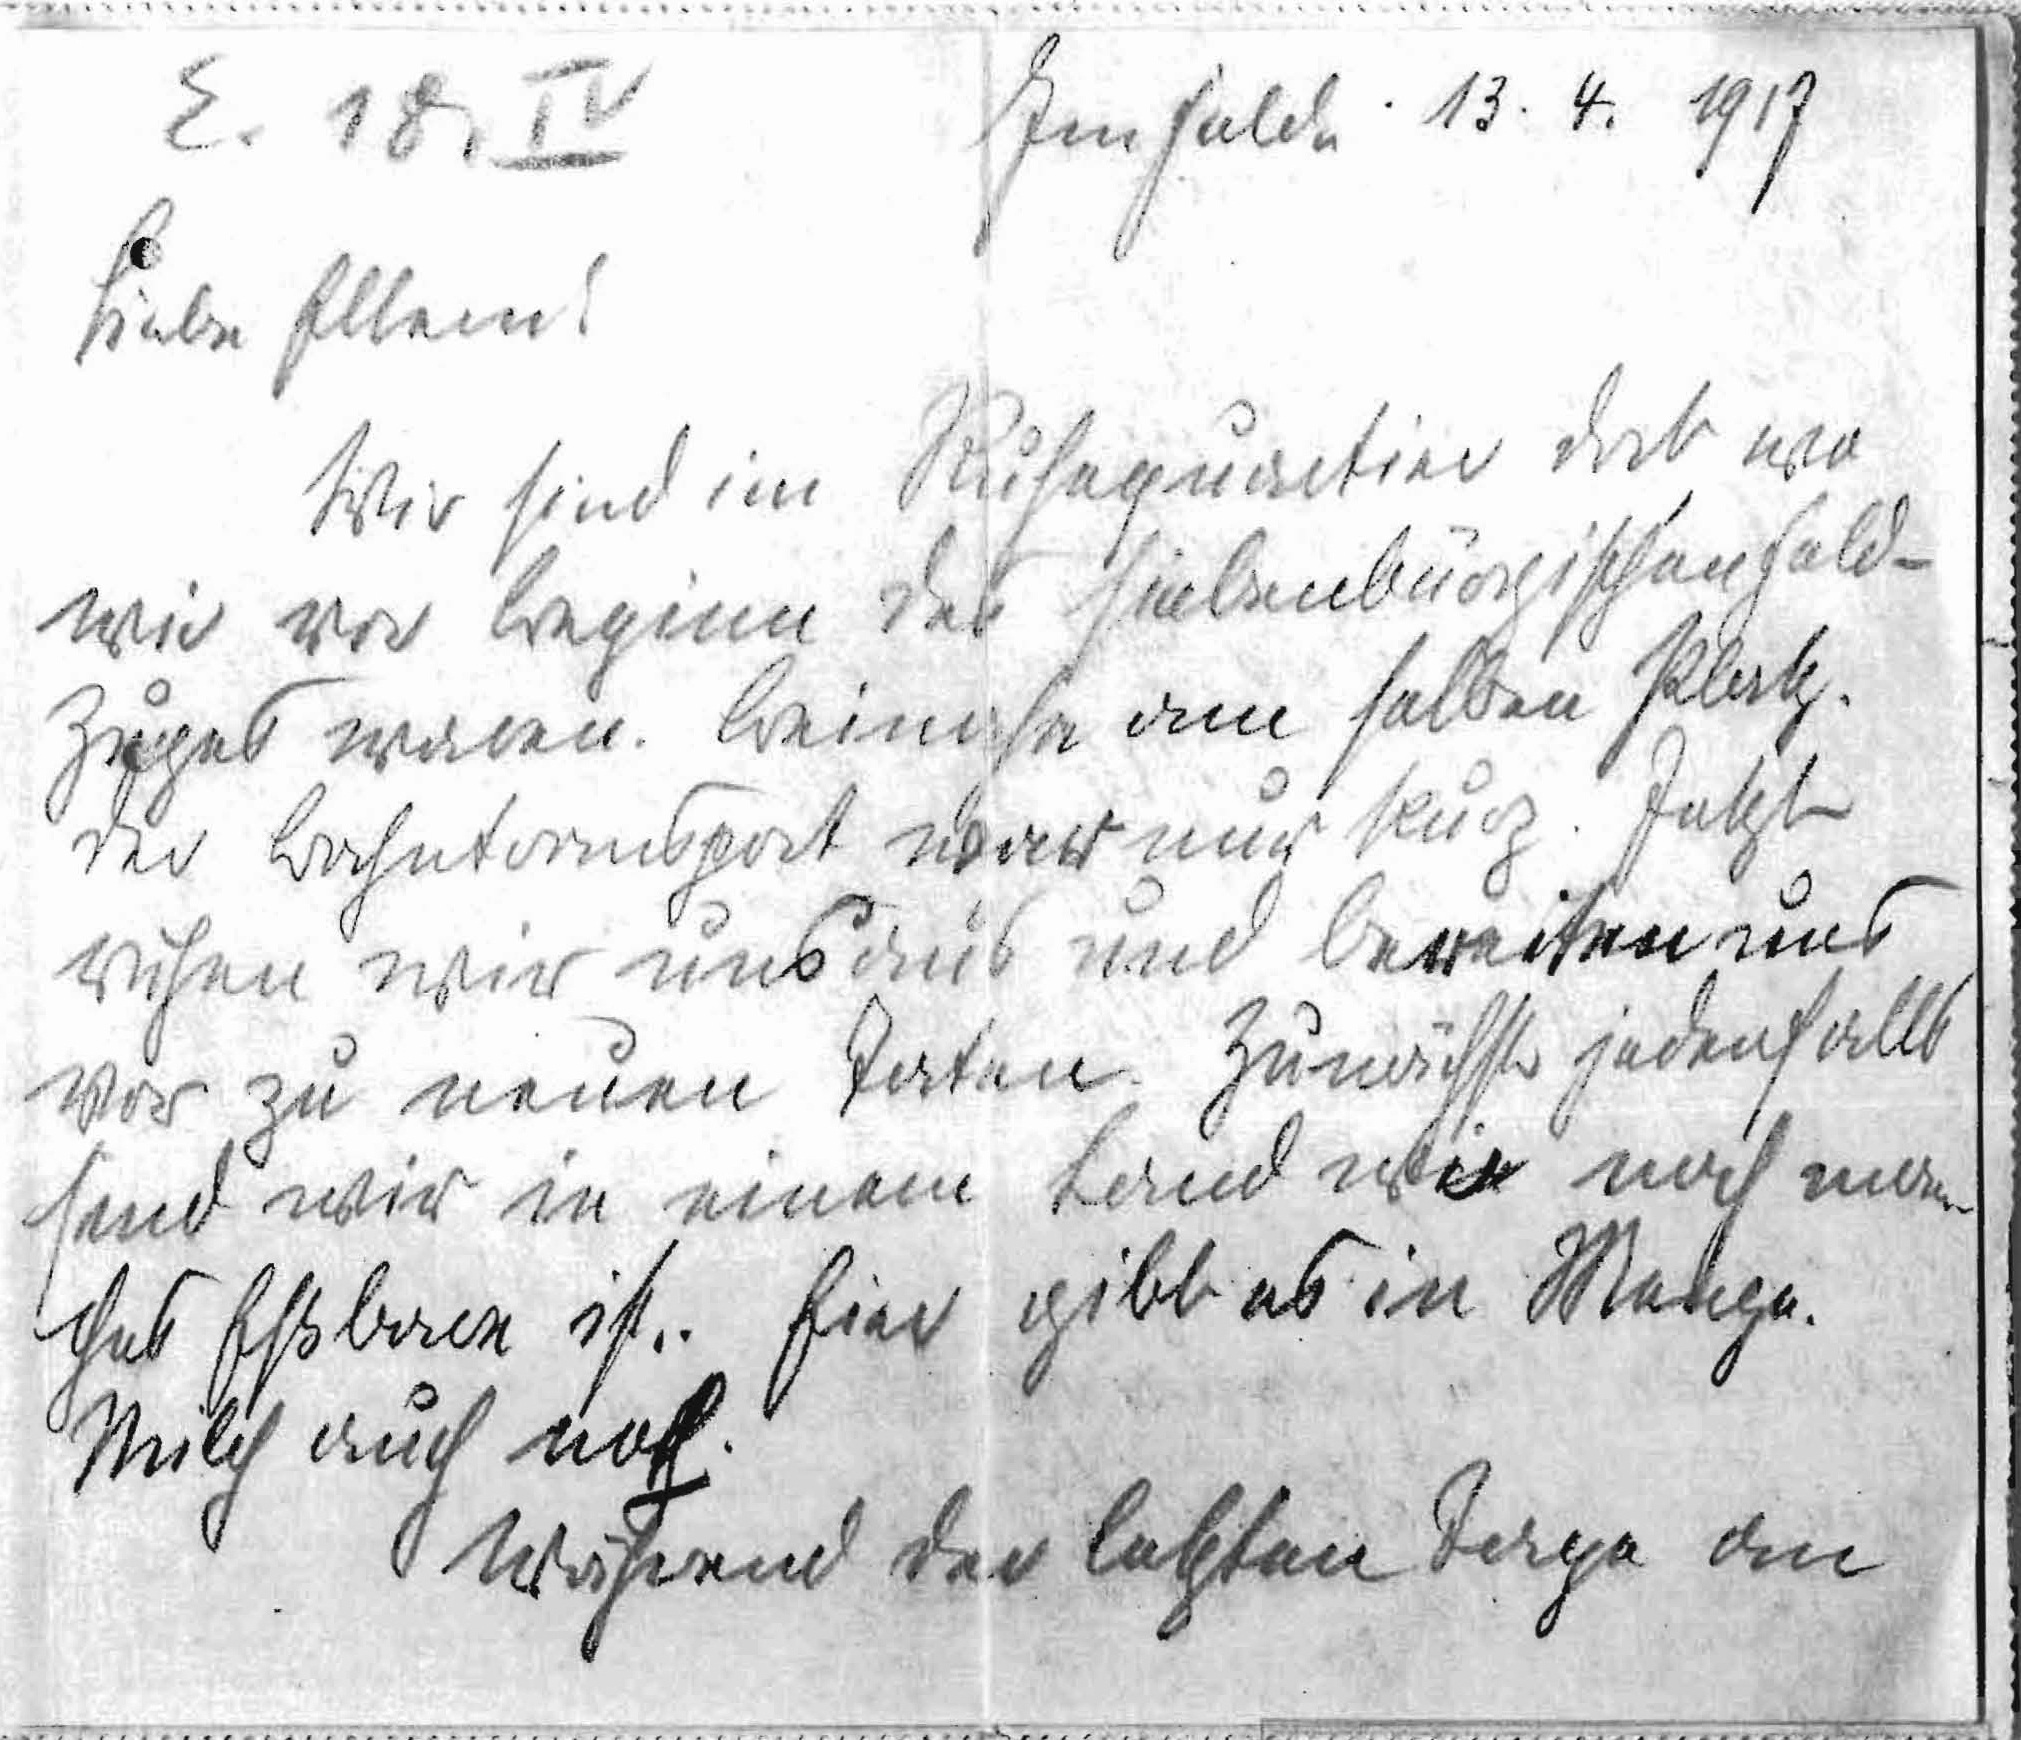 E. 18. IV
Im Felde. 13. 4. 1917
Liebe Eltern!
Wir sind im Ruhequartier dort wo
wir vor Beginn des siebenbürgischen Feld-
zuges waren. Beinahe am selben Platz.
Der Bahntransport war nur kurz. Jetzt
ruhen wir uns aus und bereiten uns
vor zu neuen Taten. Zunächst jedenfalls
sind wir in einem Land wo noch man-
ches Eßbare ist. Eier gibt es in Menge.
Milch auch noch.
Während der letzten Tage am